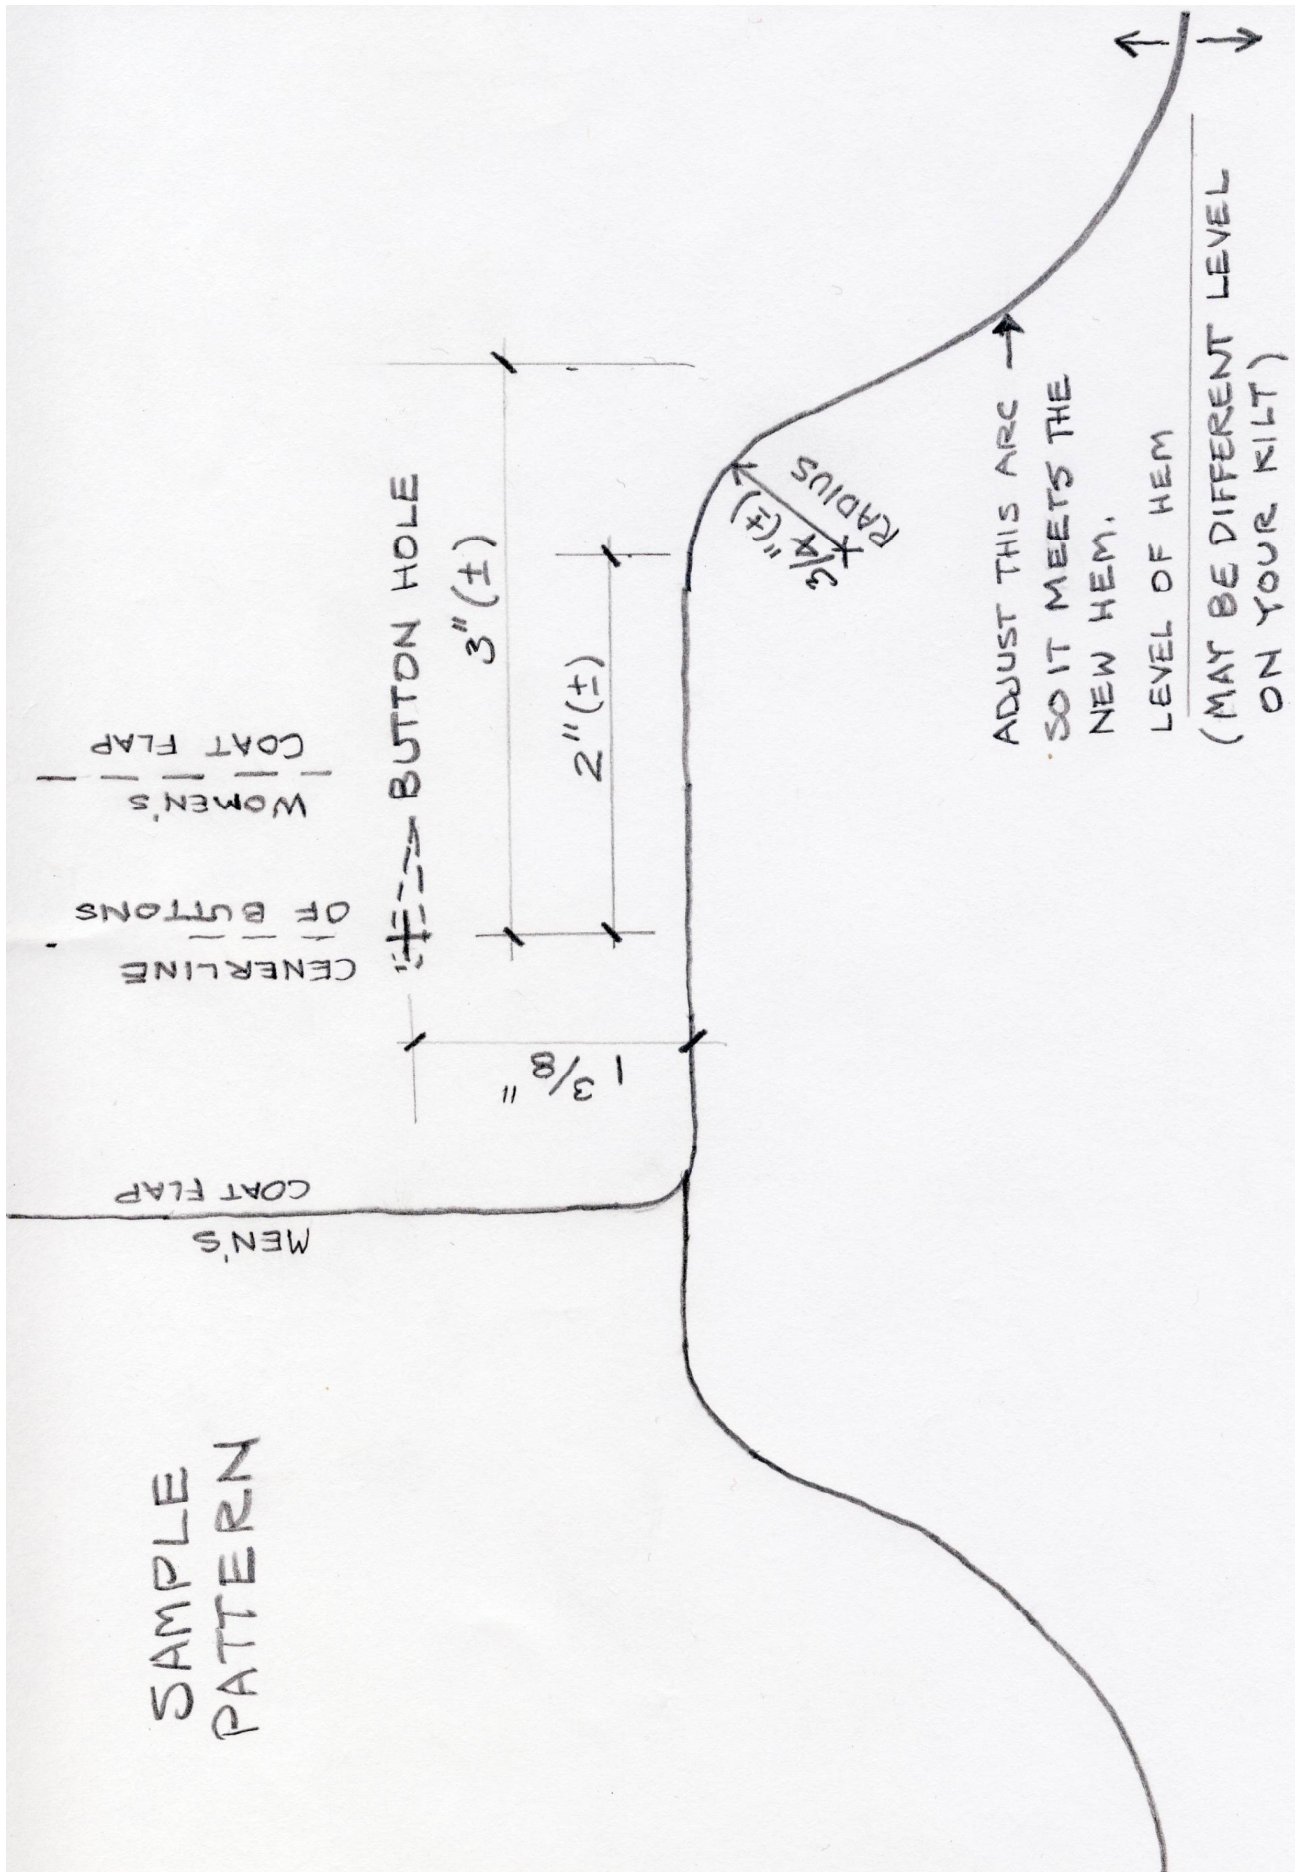 SAMPLE
PATTERN
MEN'S
COAT FLAP
CENERLINE
OF BUTTONS
WOMEN'S
COAT FLAP
BUTTON HOLE
1 3/8 "
3"(±)
2"(±)
3/4"(±)
RADIUS
ADJUST THIS ARC
SO IT MEETS THE
NEW HEM.
LEVEL OF HEM
(MAY BE DIFFERENT LEVEL
ON YOUR KILT)